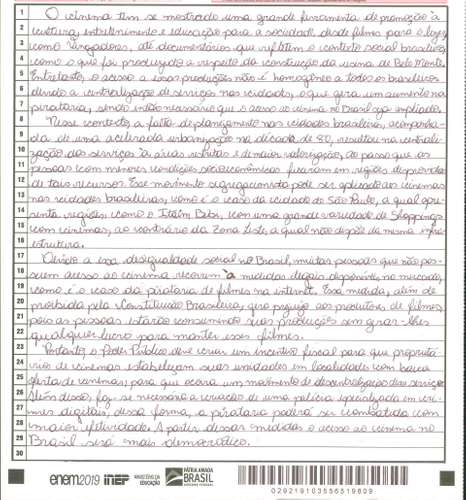 1 O cinema tem se mostrado uma grande ferramenta de promoção à
2 cultura, entretenimento e educação para a sociedade, desde filmes para o lazer,
3 como Vingadores, até documentários que refletem o contexto social brasileiro,
4 como o que foi produzido a respeito da construção da usina de Belo Monte.
5 Entretanto, o acesso a essas produções não é homogêneo a todos os brasileiros
6 devido a centralização de serviços nas cidades, o que gera um aumento na
7 pirataria, sendo então necessário que o acesso ao cinema no Brasil seja ampliado.
8 Nesse contexto, a falta de planejamento nas cidades brasileiras, acompanha-
9 da de uma acelerada urbanização na década de 80, resultou na centrali-
10 zação dos serviços à áreas restritas e de maior valorização, ao passo que as
11 pessoas com menores condições socioeconômicas ficaram em regiões desprovidas
12 de tais recursos. Esse movimento segregacionista pode ser aplicado aos cinemas
13 nas cidades brasileiras, como é o caso da cidade de São Paulo, a qual apre-
14 senta regiões como o Itaim Bibi, com uma grande variedade de Shoppings
15 com cinemas, ao contrário da Zona Leste, a qual não dispõe da mesma infra-
16 estrutura.
17 Devido a essa desigualdade social no Brasil, muitas pessoas que não pos-
18 suem acesso ao cinema recorrem a medidas ilegais disponíveis no mercado,
19 como é o caso da pirataria de filmes na internet. Essa medida, além de
20 proibida pela Constituição Brasileira, gera prejuízo aos produtores de filmes,
21 pois as pessoas estarão consumindo suas produções sem gerar-lhes
22 qualquer lucro para manter esses filmes.
23 Portanto, o Poder Público deve criar um incentivo fiscal para que proprietá-
24 rios de cinemas estabeleçam suas unidades em localidades com baixa
25 oferta de cinemas, para que ocorra um movimento de descentralização dos serviços.
26 Além disso, faz-se necessária a criação de uma polícia especializada em cri-
27 mes digitais, dessa forma, a pirataria poderá ser combatida com
28 maior efetividade. A partir dessas medidas o acesso ao cinema no
29 Brasil será mais democrático.
30
enem2019 inep MINISTÉRIO DA EDUCAÇÃO PÁTRIA AMADA BRASIL GOVERNO FEDERAL
029219103556519809